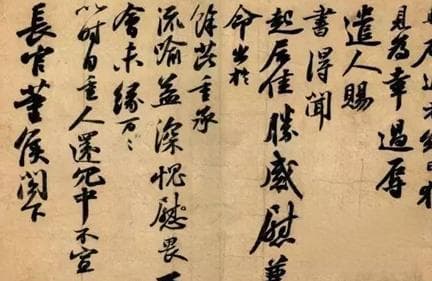 見為幸過辱
遣人賜
書得聞
起居佳勝感慰
命出於
餘芘重承
流喻益深愧慰畏
會未緣万〻
以时自重人還冗中不宣
長官董侯閣下